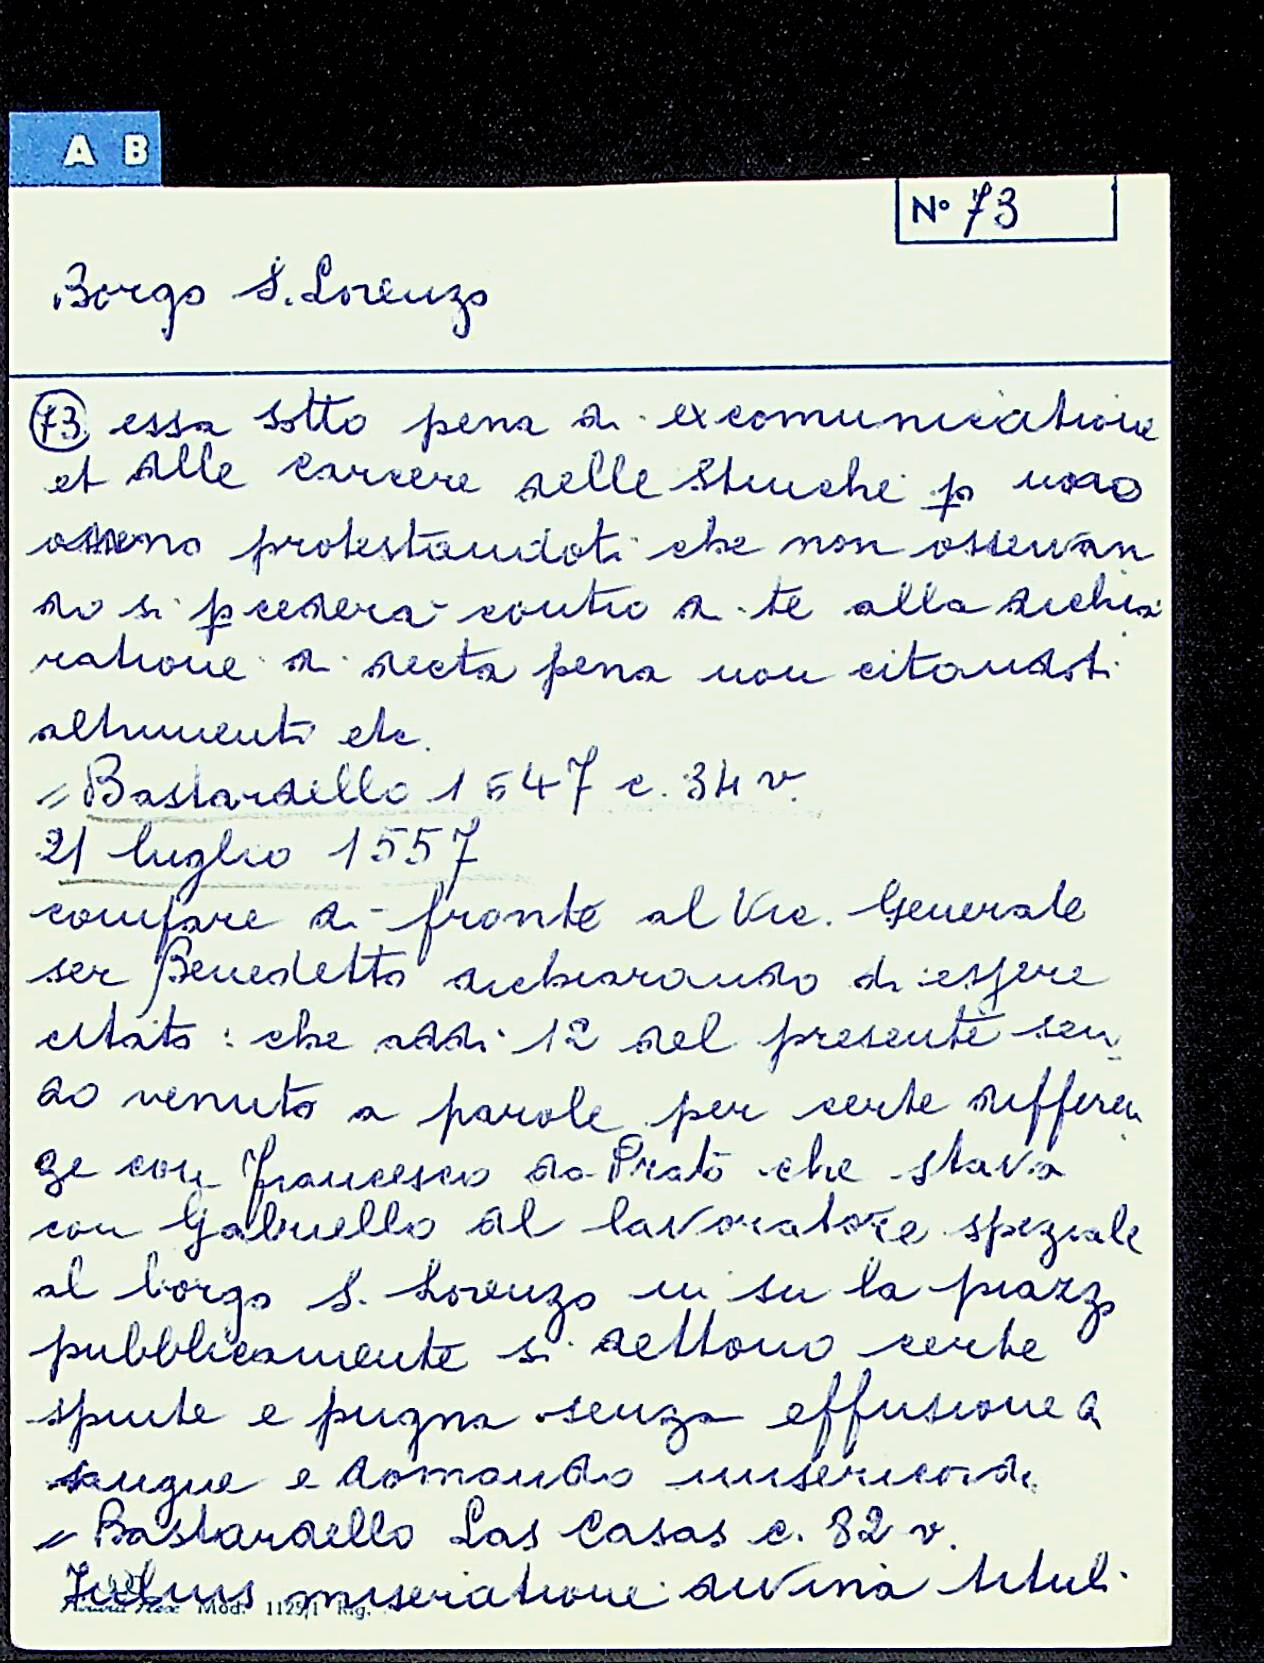 A B
N° 73
Borgo S. Lorenzo
73 essa sotto pena di excomunicatione
et delle carcere delle Stinche p
protestandoti che non osservan
do si pcederà contro di te alla dichia
ratione di decta pena non citandoti
altrimenti etc.
= Bastardello 1547 c. 34 v.
21 luglio 1557
compare di fronte al Vic. Generale
ser Benedetto dichiarando di essere
stato: che addi 12 del presente sen
do venuto a parole per certe differen
ze con Francesco da Prato che stava
con Gabriello del lavoratore speziale
al borgo S. Lorenzo in su la piazza
pubblicamente si dettono certe
spinte e pugna senza effusione di
sangue e domando misericordi
= Bastardello Las Casas c. 82 v.
Julius miseratione divina tituli
Mod. 1125/1 Rig.